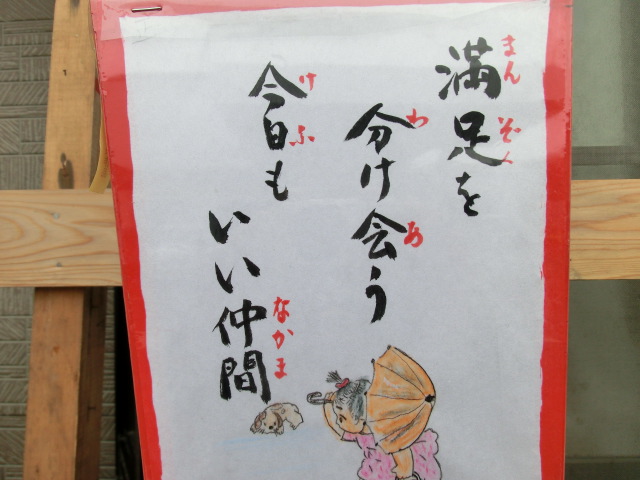 満足を
まんぞく
分け会う
わ
あ
今日も
けふ
いい仲間
なかま